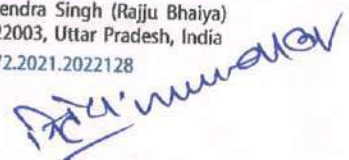 endra Singh (Rajju Bhaiya)
2003, Uttar Pradesh, India
2.2021.2022128